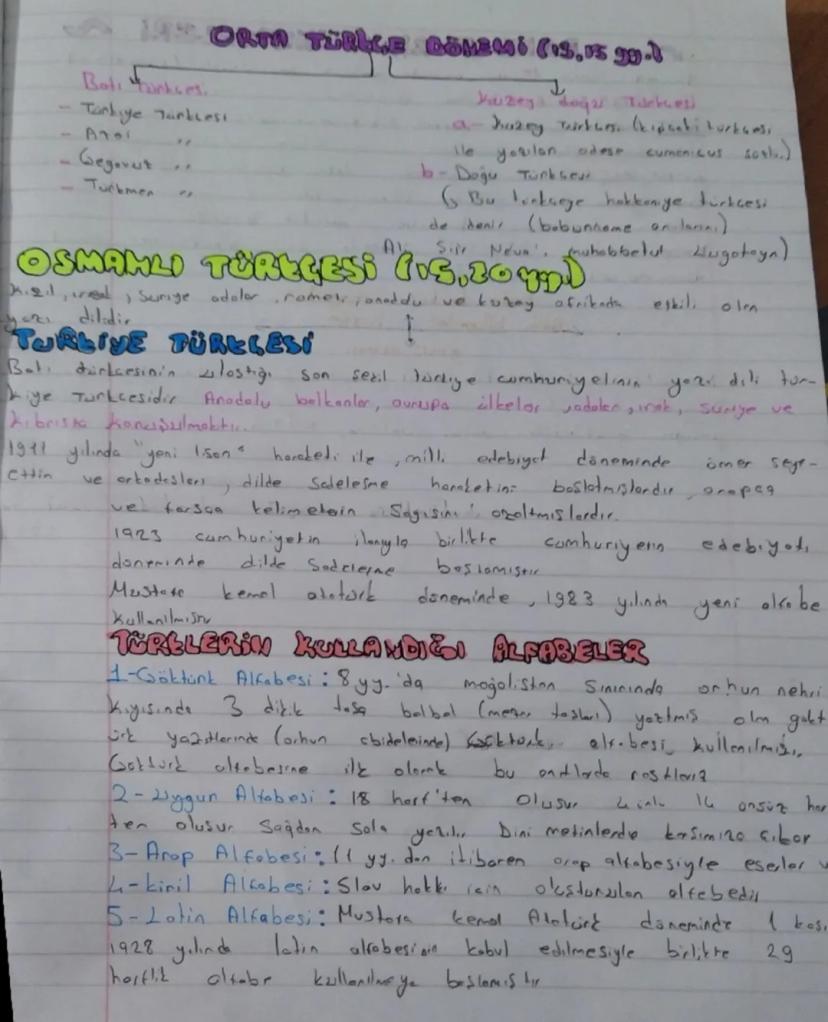 ORTA TÜRKÇE DÖNEMİ (13,15 yy.)
Batı türkçesi
- Türkiye Türkçesi
- Azəi "
- Gegavuz "
- Türkmen "
Kuzey doğu Türkçesi
a- Kuzey Türkçesi (kıpçak türkçesi
ile yazılan odese cumenicus
b- Doğu Türkçesi
Bu türkçeye hakkaniye türkçesi
de denir (babunname
Ali Şiir Nevai, muhabbetul Lugateyn)
OSMANLI TÜRKÇESİ (15,20 yy.)
ırak, suriye adalar, rumeli, anadolu ve kuzey afrikada etkili olan
yazı dilidir
TÜRKİYE TÜRKÇESİ
Batı türkçesinin ulaştığı son şekil türkiye cumhuriyetinin yazı dili tür-
kiye Türkçesidir Anadolu balkanlar, avrupa ülkeler, adalar, ırak, suriye ve
kıbrısta konuşulmaktır.
1911 yılında "yeni lisan" hareketi ile, milli edebiyat döneminde ömer seyf-
ettin ve arkadaşları, dilde sadeleşme hareketini başlatmışlardır, arapça
ve farsça kelimelerin sayısını azaltmışlardır.
1923 cumhuriyetin ilanıyla birlikte cumhuriyetin edebiyatı
döneminde dilde sadeleşme başlamıştır
Mustafa kemal atatürk döneminde, 1983 yılında yeni alfabe
kullanılmıştır
TÜRKLERİN KULLANDIĞI ALFABELER
1-Göktürk Alfabesi: 8 yy.'da moğolistan sınırında orhun nehri
kıyısında 3 dikik taşa balbal (mezar taşları) yazılmış olan gökt
ürk yazıtlarında (orhun abidelerinde) Göktürk alfabesi kullanılmıştır.
Göktürk alfabesine ilk olarak bu anıtlarda rastlarız
2-Uygur Alfabesi: 18 harf'ten oluşur 4 ünlü 14 ünsüz har
ten oluşur Sağdan Sola yazılır Dini metinlerde karşımıza çıkar
3-Arap Alfabesi: 11 yy. dan itibaren arap alfabesiyle eserler v
4-kiril Alfabesi: Slav halkı için oluşturulan alfabedir
5-Latin Alfabesi: Mustafa kemal Atatürk döneminde 1 kas.
1928 yılında latin alfabesinin kabul edilmesiyle birlikte 29
harflik alfabe kullanılmaya başlamıştır